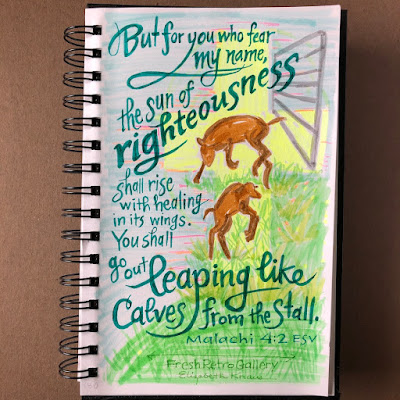 But for you who fear
my name,
the sun of
righteousness
shall rise
with healing
in its wings.
You shall
go out leaping like
Calves from the stall.
Malachi 4:2 ESV
FreshRetroGallery
Elizabeth